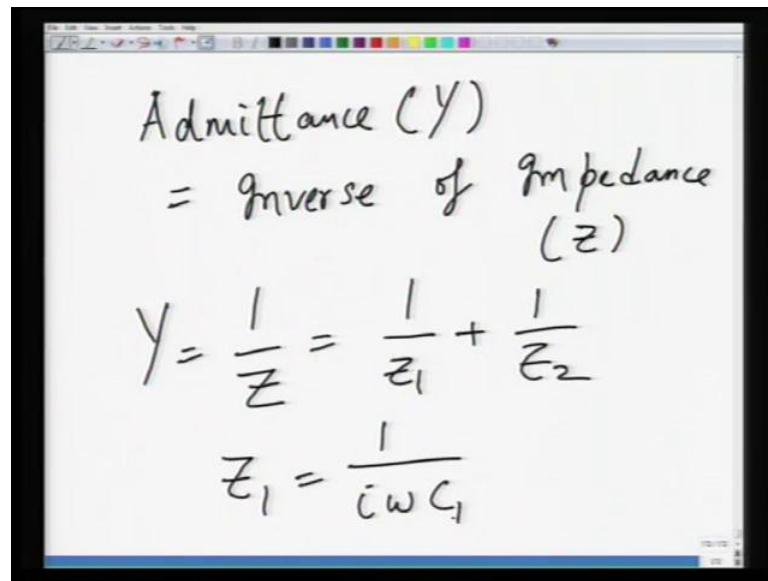 Admittance (Y)
= Inverse of Impedance
(Z)
Y = 1/Z = 1/Z₁ + 1/Z₂
Z₁ = 1/iωC₁